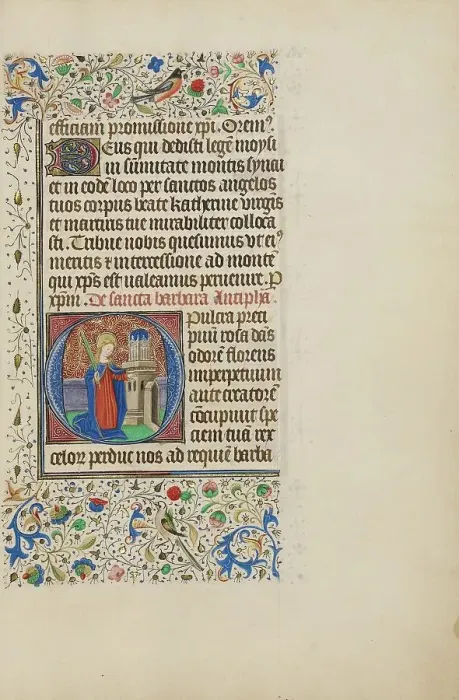 efficiam promissione xpi. Orem⁹
Deus qui dedisti legē moysi
in sūmitate montis synai
et in eodē loco per sanctos angelos
tuos corpus beate katherine virgīs
et martiris tue mirabiliter colloca
sti. Tribue nobis quesumus vt ei⁹
meritis ⁊ intercessione ad monte
qui xp̄s est ualeamus peruenire. P
xpm̄. De sancta barbara Antipha.
Pulcra preci
pum rosa dās
odorē florens
imperpetuum
ante creatorē
cōcupiuit spe
ciem tuā rex
celoꝝ perduc nos ad requiē barba